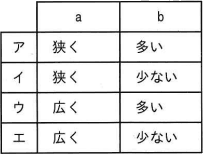 a b
ア 狭く 多い
イ 狭く 少ない
ウ 広く 多い
エ 広く 少ない